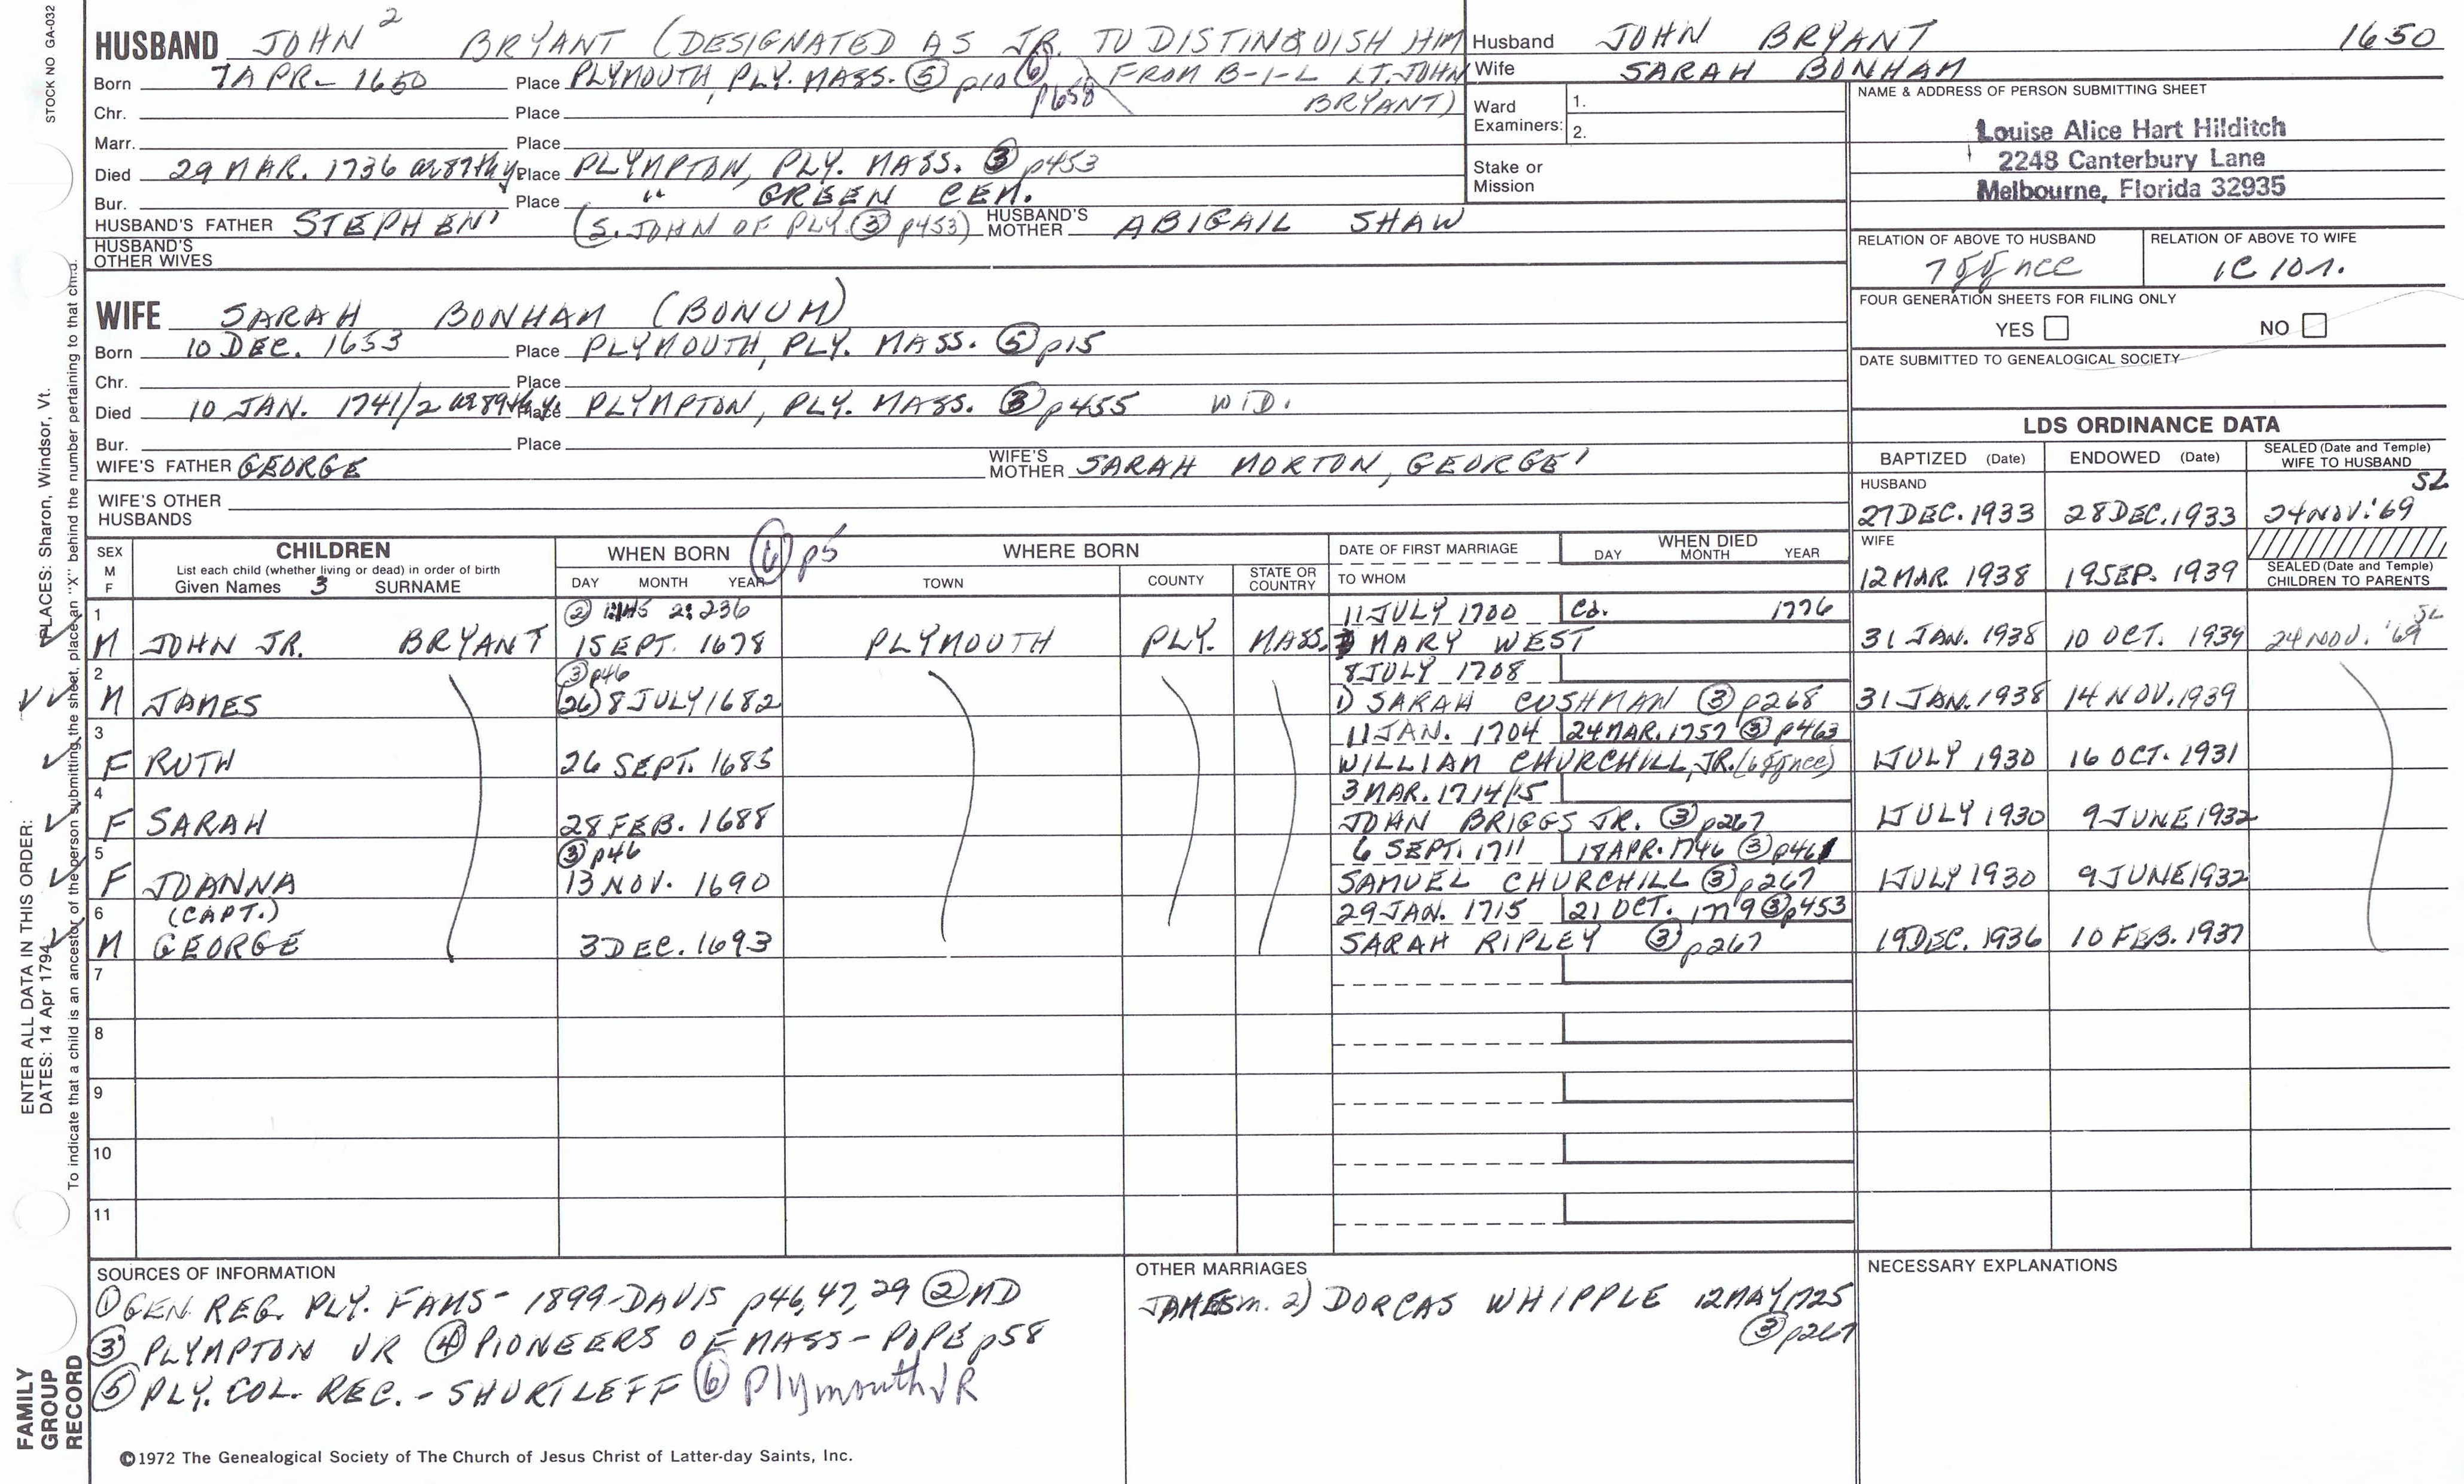 STOCK NO GA-032
HUSBAND JOHN 2 BRYANT (DESIGNATED AS JR. TO DISTINGUISH HIM
Born 7 APR- 1650 Place PLYMOUTH, PLY. MASS. (5) p10 (6) p658 FROM B-I-L LT. JOHN
Chr. Place BRYANT)
Marr. Place
Died 29 MAR. 1736 ae 87th y Place PLYMPTON, PLY. MASS. (3) p453
Bur. Place " GREEN CEM.
HUSBAND'S FATHER STEPHEN 1 (S. JOHN OF PLY. (3) p453) HUSBAND'S MOTHER ABIGAIL SHAW
HUSBAND'S OTHER WIVES
Husband JOHN BRYANT 1650
Wife SARAH BONHAM
Ward Examiners: 1.
2.
Stake or Mission
NAME & ADDRESS OF PERSON SUBMITTING SHEET
Louise Alice Hart Hilditch
2248 Canterbury Lane
Melbourne, Florida 32935
RELATION OF ABOVE TO HUSBAND RELATION OF ABOVE TO WIFE
7 gg nce 1C 10r.
FOUR GENERATION SHEETS FOR FILING ONLY
YES NO
DATE SUBMITTED TO GENEALOGICAL SOCIETY
WIFE SARAH BONHAM (BONUM)
Born 10 DEC. 1653 Place PLYMOUTH, PLY. MASS. (5) p15
Chr. Place
Died 10 JAN. 1741/2 ae 89th y. Place PLYMPTON, PLY. MASS. (3) p455 WID.
Bur. Place
WIFE'S FATHER GEORGE WIFE'S MOTHER SARAH MORTON, GEORGE 1
WIFE'S OTHER HUSBANDS
LDS ORDINANCE DATA
BAPTIZED (Date) ENDOWED (Date) SEALED (Date and Temple) WIFE TO HUSBAND
HUSBAND SL
27 DEC. 1933 28 DEC. 1933 24 NOV. '69
WIFE
12 MAR. 1938 19 SEP. 1939 SEALED (Date and Temple) CHILDREN TO PARENTS
SEX M F CHILDREN WHEN BORN (6) p5 WHERE BORN DATE OF FIRST MARRIAGE WHEN DIED DAY MONTH YEAR
List each child (whether living or dead) in order of birth
Given Names 3 SURNAME DAY MONTH YEAR TOWN COUNTY STATE OR COUNTRY TO WHOM
1 (2) 2:236 11 JULY 1700 Ca. 1776 SL
M JOHN JR. BRYANT 15 SEPT. 1678 PLYMOUTH PLY. MASS. MARY WEST 31 JAN. 1938 10 OCT. 1939 24 NOV. '69
2 (3) p46 8 JULY 1708
M JAMES (26) 8 JULY 1682 1) SARAH CUSHMAN (3) p268 31 JAN. 1938 14 NOV. 1939
3 11 JAN. 1704 24 MAR. 1757 (3) p463
F RUTH 26 SEPT. 1685 WILLIAM CHURCHILL, JR. (6 gg nce) 1 JULY 1930 16 OCT. 1931
4 3 MAR. 1714/15
F SARAH 28 FEB. 1688 JOHN BRIGGS JR. (3) p267 1 JULY 1930 9 JUNE 1932
5 (3) p46 6 SEPT. 1711 18 APR. 1746 (3) p461
F JOANNA 13 NOV. 1690 SAMUEL CHURCHILL (3) p267 1 JULY 1930 9 JUNE 1932
6 (CAPT.) 29 JAN. 1715 21 OCT. 1779 (3) p453
M GEORGE 3 DEC. 1693 SARAH RIPLEY (3) p267 19 DEC. 1936 10 FEB. 1937
7
8
9
10
11
SOURCES OF INFORMATION
(1) GEN. REG. PLY. FAMS- 1899-DAVIS p46, 47, 29 (2) MD
(3) PLYMPTON VR (4) PIONEERS OF MASS- POPE p58
(5) PLY. COL. REC. - SHURTLEFF (6) Plymouth VR
OTHER MARRIAGES
JAMES m. 2) DORCAS WHIPPLE 12 MAY 1725
(3) p267
NECESSARY EXPLANATIONS
©1972 The Genealogical Society of The Church of Jesus Christ of Latter-day Saints, Inc.
FAMILY GROUP RECORD
ENTER ALL DATA IN THIS ORDER:
DATES: 14 Apr 1794
PLACES: Sharon, Windsor, Vt.
To indicate that a child is an ancestor of the person submitting the sheet, place an "X" behind the number pertaining to that child.